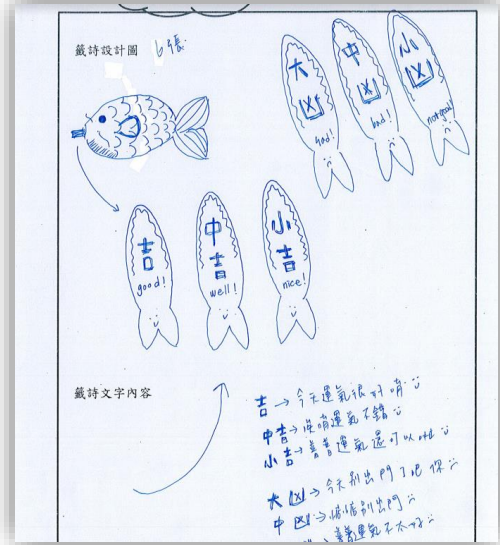 籤詩設計圖 6張
大凶
sad!
中凶
bad!
小凶
not good!
吉
good!
中吉
well!
小吉
nice!
籤詩文字內容
吉→今天運氣很好唷
中吉→唉唷運氣不錯
小吉→運氣還可以
大凶→今天別出門了吧你
中凶→別出門
運氣不太好